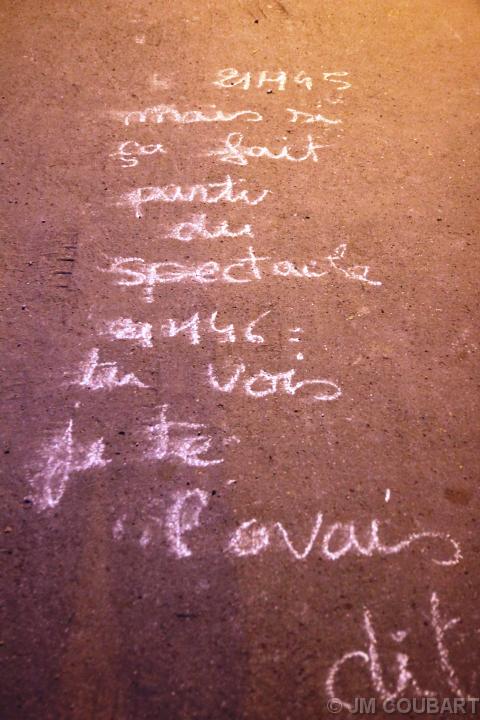 21H45
mais si
ça fait
partie
du
spectacle
21H46 :
tu vois
je te
l'avais
dit
© JM COUBART